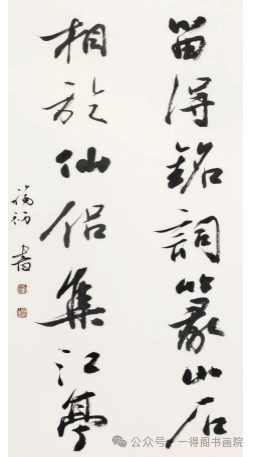 留得銘詞篆山石
相於仙侶集江亭
書
公众号 · 一得阁书画院